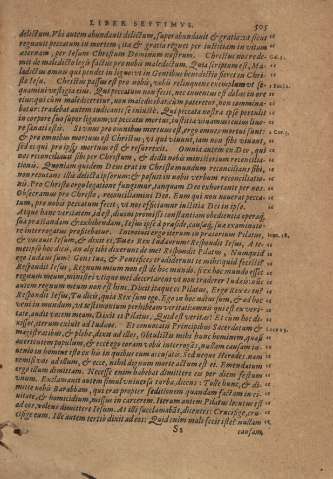 LIBER SEPTIMVS. 505
delictum. Vbi autem abundauit delictum, superabundauit & gratia: vt sicut
regnauit peccatum in mortem, ita & gratia regnet per iustitiam in vitam
æternam, per Iesum Christum Dominum nostrum. Christus nos rede-
mit de maledicto legis factus pro nobis maledictum. Quia scriptum est, Ma-
ledictus omnis qui pendet in ligno: vt in Gentibus benedictio fieret in Chri-
sto Iesu. Christus passus est pro nobis, vobis relinquens exemplum vt se-
quamini vestigia eius. Qui peccatum non fecit, nec inuentus est dolus in ore
eius: qui cum malediceretur, non maledicebat: cum pateretur, non commina-
batur: tradebat autem iudicanti se iniustè. Qui peccata nostra ipse pertulit
in corpore suo super lignum: vt peccatis mortui, iustitiæ viuamus: cuius liuo-
re sanati estis. Si vnus pro omnibus mortuus est, ergo omnes mortui sunt:
& pro omnibus mortuus est Christus, vt qui viuunt, iam non sibi viuant,
sed ei qui pro ipsis mortuus est & resurrexit. Omnia autem ex Deo, qui
nos reconciliauit sibi per Christum, & dedit nobis ministerium reconcilia-
tionis. Quoniam quidem Deus erat in Christo mundum reconcilians sibi,
non reputans illis delicta ipsorum: & posuit in nobis verbum reconciliatio-
nis. Pro Christo ergo legatione fungimur, tanquam Deo exhortante per nos.
Obsecramus pro Christo, reconciliamini Deo. Eum qui non nouerat pecca-
tum, pro nobis peccatum fecit, vt nos efficeremur iustitia Dei in ipso.
Introiuit ergo iterum in prætorium Pilatus,
& vocauit Iesum, & dixit ei, Tu es Rex Iudæorum? Respondit Iesus, A te-
metipso hoc dicis, an alij tibi dixerunt de me? Respondit Pilatus, Nunquid
ego Iudæus sum? Gens tua, & Pontifices tradiderunt te mihi: quid fecisti?
Respondit Iesus, Regnum meum non est de hoc mundo. si ex hoc mundo esset
regnum meum, ministri vtique mei decertarent vt non traderer Iudæis: nunc
autem regnum meum non est hinc. Dixit itaque ei Pilatus, Ergo Rex es tu?
Respondit Iesus, Tu dicis, quia Rex sum ego. Ego in hoc natus sum, & ad hoc
veni in mundum, vt testimonium perhibeam veritati: omnis qui est ex veri-
tate, audit vocem meam. Dicit ei Pilatus, Quid est veritas? Et cum hoc di-
xisset, iterum exiuit ad Iudæos. Et conuocatis Principibus Sacerdotum &
magistratibus & plebe, dixit ad illos, Obtulistis mihi hunc hominem, quasi
auertentem populum, & ecce ego coram vobis interrogans, nullam causam in-
uenio in homine isto ex his in quibus eum accusatis. Sed neque Herodes. nam
remisi vos ad illum, & ecce, nihil dignum morte actum est ei. Emendatum
ergo illum dimittam. Necesse enim habebat dimittere eis per diem festum
vnum. Exclamauit autem simul vniuersa turba, dicens: Tolle hunc, & di-
mitte nobis Barabbam, qui erat propter seditionem quandam factam in ci-
uitate, & homicidium, missus in carcerem. Iterum autem Pilatus locutus est
ad eos, volens dimittere Iesum. At illi succlamabant, dicentes: Crucifige, cru-
cifige eum. Ille autem tertiò dixit ad eos: Quid enim mali fecit iste? nullam
Ss causam